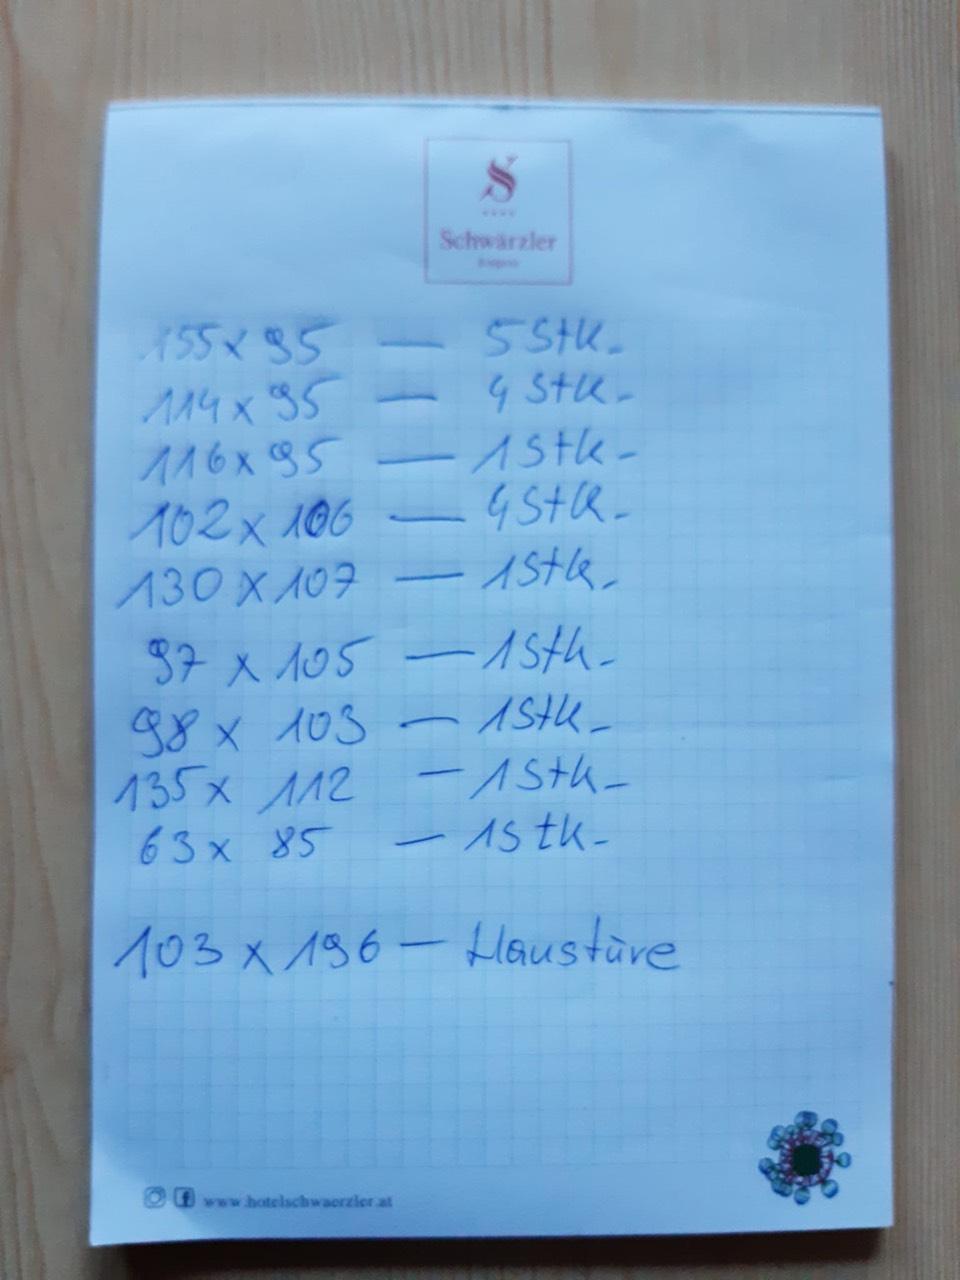 Schwärzler
155 x 95 — 5 Stk.
114 x 95 — 4 Stk.
116 x 95 — 1 Stk.
102 x 106 — 4 Stk.
130 x 107 — 1 Stk.
97 x 105 — 1 Stk.
98 x 103 — 1 Stk.
135 x 112 — 1 Stk.
63 x 85 — 1 Stk.
103 x 196 — Haustüre
www.hotelschwaerzler.at